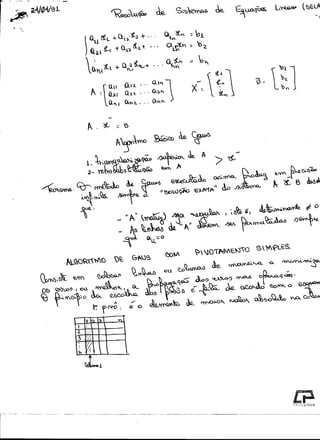 24/04/81
Resolução de Sistemas de Equações Lineares (SELA
a11 x1 + a12 x2 + ... a1n xn = b1
a21 x1 + a22 x2 + ... a2n xn = b2
an1 x1 + an2 x2 + ... ann xn = bn
A = [ a11 a12 ... a1n
a21 a22 ... a2n
an1 an2 ... ann ]
X = [ x1
xn ]
B = [ b1
b2
bn ]
A . X = B
Algoritmo Básico de Gauss
1. triangularização superior de A
2. retrosubstituição em A
Teorema: O método de Gauss executado acima produz em precisão
infinita sempre a "SOLUÇÃO EXATA" do sistema A X = B desde
que:
- "A" (matriz) seja regular, isto é, determinante ≠ 0
- As linhas de "A" devem ser permutadas sempre
que aii = 0
ALGORITMO DE GAUSS COM PIVOTAMENTO SIMPLES
Consiste em colocar linhas ou colunas de maneira a minimizar
os erros, ou melhor, a propagação dos erros nas operações.
O princípio da escolha dos pivôs é feita de acordo com o esquema
1º pivô: é o elemento de maior valor absoluto na coluna
1 2 3 n
1
2
3
n
coluna 1